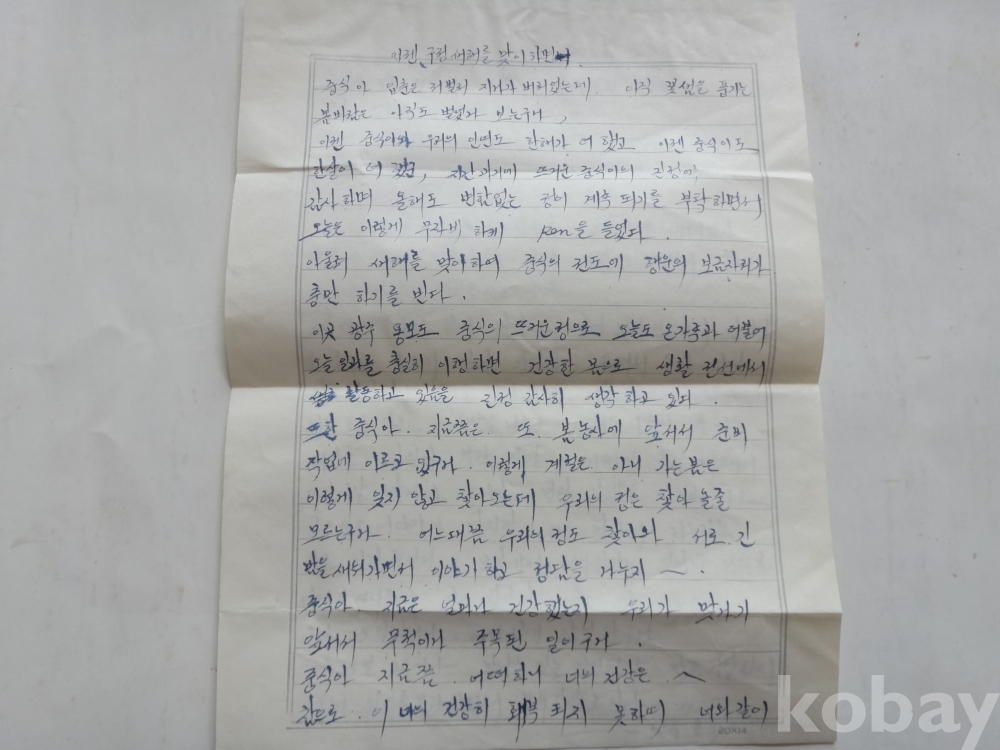 이젠 구정 새해를 맞이하면서.
중식아 입춘은 저멀리 지나가 버리었는데. 아직 꽃섬을 풍기는
봄바람은 아직도 멀었나 보는구나,
이젠 중식이와 우리의 인연도 한해가 더 했고 이젠 중식이도
한살이 더 했고, 지난 과거에 뜨거운 중식이의 진정에
감사하며 올해도 변함없는 정이 계속 되기를 부탁하면서
오늘은 이렇게 무자비 하게 Pen을 들었다.
아울러 새해를 맞이하여 중식의 전도에 행운의 보금자리가
충만 하기를 빈다.
이곳 광주 동모도 중식의 뜨거운정으로 오늘도 온가족과 더불어
오늘 일과를 충실히 이행하면 건강한 몸으로 생활 전선에서
활동하고 있음을 진정 감사히 생각하고 있다.
또한 중식아. 지금쯤은. 또. 봄농사에 앞서서 준비
작업에 이르고 있구나. 이렇게 계절은. 아니 가는봄은
이렇게 잊지 않고 찾아오는데 우리의 정은 찾아 올줄
모르는구나. 어느때쯤 우리의 정도 찾아와 서로. 긴
밤을 새워가면서 이야기하고 정담을 나누지 ~.
중식아. 지금은 얼마나 건강했는지 우리가 만나기
앞서서 무척이나 주목된 일이구나.
중식아 지금쯤. 어떠하니 너의 건강은. ~
참으로. 이 너의 건강히 회복 되지 못하며 너와 같이
kobay
20X14